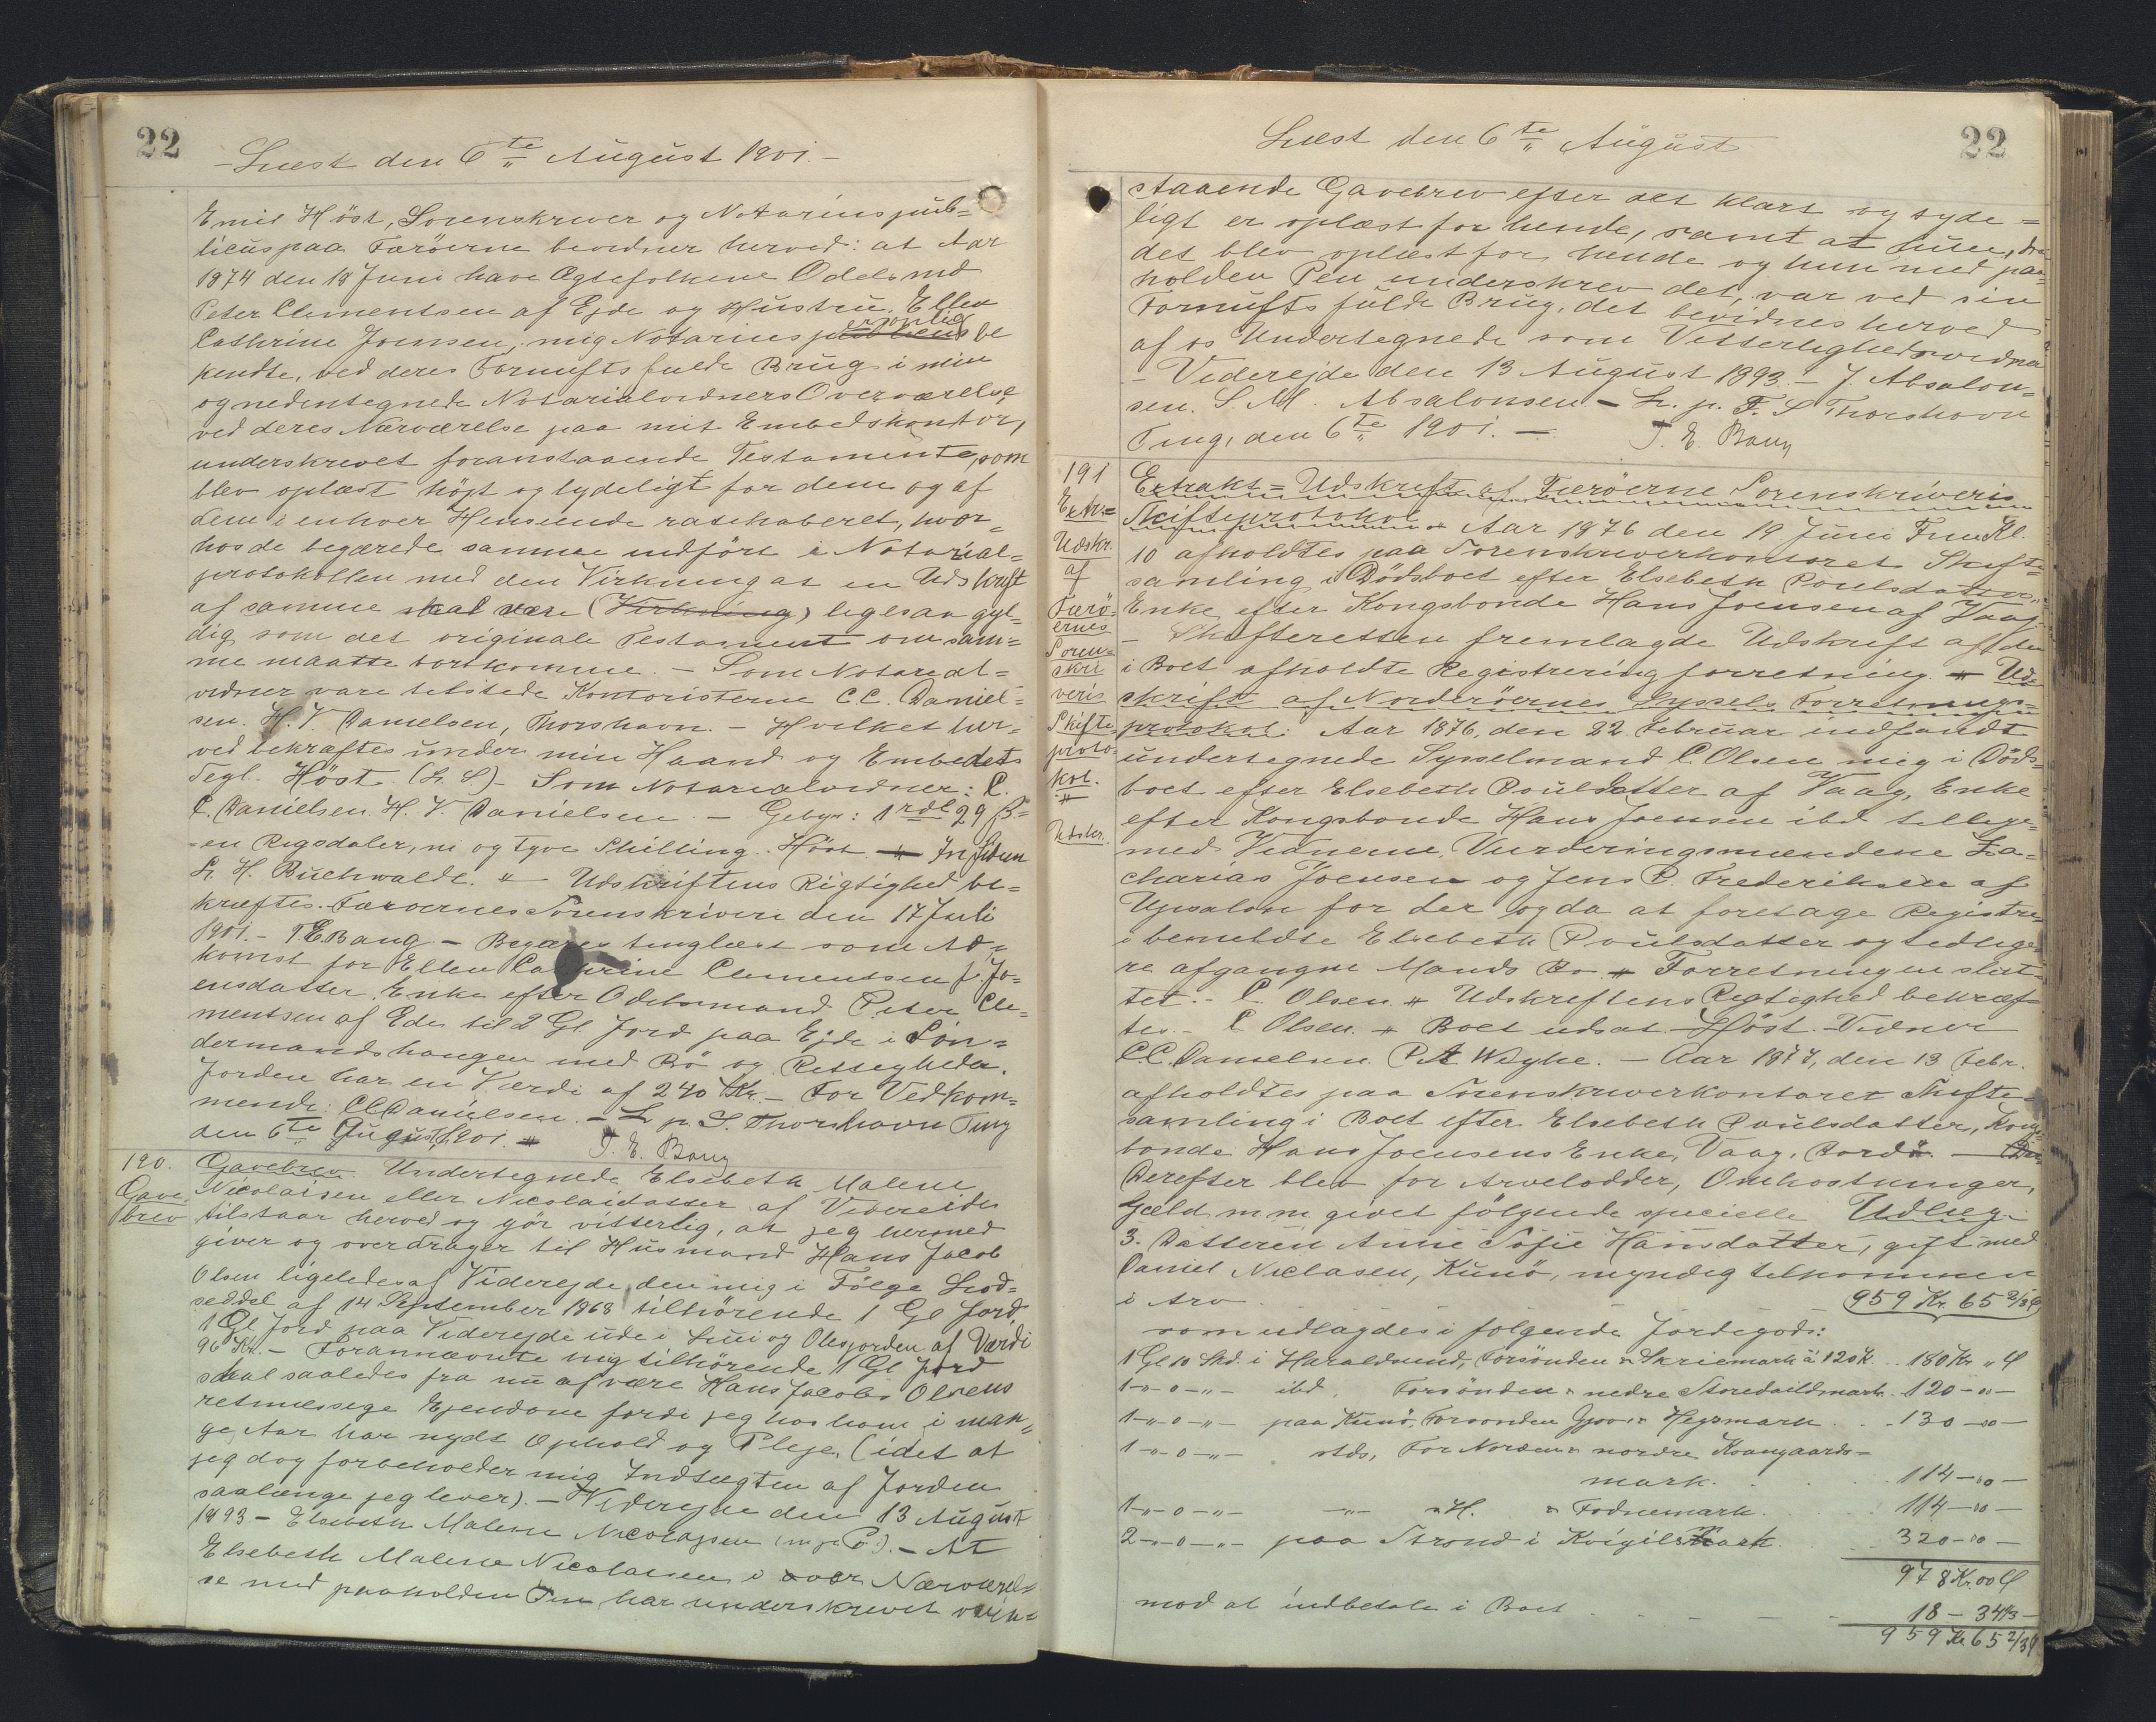 22
Læst den 6te August 1901.-
Emil Höst, Sorenskriver og Notarius pub=
licus paa Færöerne bevidner herved: at Aar
1874 den 18 Juni have Ægtefolkene Odelsmd
Peter Clementsen af Ejde og Hustru, Ellen
Cathrine Joensen, mig Notarius publicus personlig be
kendte, ved deres Fornufts fulde Brug i min
og nedentegnede Notarialvidners Overværelse
ved deres Nærværelse paa mit Embedskontor,
underskrevet foranstaaende Testamente, som
blev oplæst höjt og lydeligt for dem og af
dem i enhver Henseende ratihaberet, hvor=
hos de begærede samme indfört i Notarial=
protokollen med den Virkning at en Udskrift
af samme skal være (Virkning) ligesaa gyl=
dig som det originale Testament om sam=
me maatte bortkomme. - Som Notarial=
vidner vare tilstede Kontoristerne C.C. Daniel=
sen. H. V. Danielsen, Thorshavn. - Hvilket her=
ved bekræftes under min Haand og Embedets
Segl. Höst (L. S.) - Som Notarialvidner: C.
C. Danielsen. H. V. Danielsen. - Gebyr: 1 rdl 29 ß=
en Rigsdaler, ni og tyve Skilling. Höst. - In fidem
L. H. Buchwaldt. " Udskriftens Rigtighed be=
kræftes. Færöernes Sorenskriveri den 17 Juli
1901. - T.E. Bang - Begæres tinglæst som Ad=
komst for Ellen Cathrine Clementsen f. Jo=
ensdatter, Enke efter Odelsmand Peter Cle=
mentsen af Ede til 2 Gl. Jord paa Ejde i Sön=
dermandshaugen med Bö og Rettigheder.
Jorden har en Værdi af 240 Kr. - For Vedkom=
mende: CC Danielsen. - L. p. S. Thorshavn Ting
den 6te August 1901. " T. E. Bang
190.
Gave
brev
Gavebrev. Undertegnede Elsebeth Malene
Nicolaisen eller Nicolaidatter af Videreide
tilstaar herved og gör vitterlig, at jeg hermed
giver og overdrager til Husmand Hans Jacob
Olsen ligeledes af Viderejde, den mig i Fölge Lod=
seddel af 14 September 1868 tilhörende 1 Gl. Jord,
1 Gl Jord paa Viderejde ude i Lüi og Olesjorden af Værdi
96 Kr. - Forannævnte mig tilhörende 1 Gl Jord
skal saaledes fra nu af være Hans Jacob Olsens
retmæssige Ejendom fordi jeg hos ham i man=
ge Aar har nydt Ophold og Pleje. (idet at
jeg dog forbeholder mig Indtægten af Jorden
saalænge jeg lever). - Viderejde den 13 August
1893 - Elsebeth Malene Nicolajsen (m. p. P.). - At
Elsebeth Malene Nicolaisen i vor Nærværel=
se med paaholden Pen har underskrevet oven=
22
Læst den 6te August
staaende Gavebrev efter det klart og tyde=
ligt er oplæst for hende, samt at hun, da
det blev oplæst for hende og hun med paa=
holden Pen underskrev det, var ved sin
Fornufts fulde Brug, det bevidnes herved
af os Undertegnede som Vitterlighedsvidner
- Viderejde den 13 August 1893. - J. Absalon=
sen. S. M. Absalonsen - L. p. F. S Thorshavn
Ting, den 6te 1901. - T. E. Bang
191
Extr.=
Udskr.
af
Færö=
ernes
Soren=
skri
veris
Skifte
proto=
kol.
"
Udskr.
Extrakt=Udskrift af Færöerne Sorenskriveris
Skifteprotokol " Aar 1876 den 19. Juni Fm. Kl.
10 afholdtes paa Sorenskriverkontoret Skifte=
samling i Dödsboet efter Elsebeth Poulsdatter,
Enke efter Kongsbonde Hans Joensen af Vaag.
- Skifteretten fremlagde Udskrift af den
i Boet afholdte Registreringsforretning. " Ud=
skrift af Norderöernes Syssels Forretnings=
protokol: Aar 1876, den 22 Februar indfandt
undertegnede Sysselmand C. Olsen mig i Döds=
boet efter Elsebeth Poulsdatter af Vaag, Enke
efter Kongsbonde Hans Joensen ibd tillige
med Vidnerne, Vurderingsmændene Za=
charias Joensen og Jens P. Frederiksen af
Upsalon for der og da at foretage Registre
i bemeldte Elsebeth Poulsdatter og tidlige
re afgangne Mands Bo " Forretningen slut=
tet. - C. Olsen " Udskriftens Rigtighed bekræf
tes. - C Olsen. " Boet udsat. Höst. - Vidner
C.C. Danielsen. P.A. Weyhe. - Aar 1877, den 13 Febr.
afholdtes paa Sorenskriverkontoret Skifte=
samling i Boet efter Elsebeth Poulsdatter, Kongs=
bonde Hans Joensens Enke, Vaag, Bordö. -
Derefter blev for Arvelodder, Omkostninger,
Gæld m m givet fölgende specielle Udlæg.
3. Datteren Anne Sofie Hansdatter, gift med
Daniel Niclasen, Kunö, myndig tilkommer
i Arv . . . 959 Kr. 65 2/3 Ø
som udlagdes i fölgende Jordegods:
1 Gl 10 Skd. i Haraldsund, Forsönden " Skriemark à 120 K. . 180 Kr. " Ø
1 - " - 0 - " - ibd, Forsönden " nedre Storedeildmark. 120 - " -
1 - " - 0 - " - paa Kunö, Forsonden Gjov " Hegsmark . . 130 - 00 -
1 - " - 0 - " - stds, For Norden " nordre Kvangaards=
mark. . . 114 - 00 -
1 - " - 0 - " - - " - " H. " Fodnemark. . . 114 - 00 -
2 - " - 0 - " - paa Strond i Kvigilsmark. . . 320 - 00 -
978 Kr. 00 Ø
mod at indbetale i Boet . . . 18 - 34 1/3 -
959 Kr 65 2/3 Ø